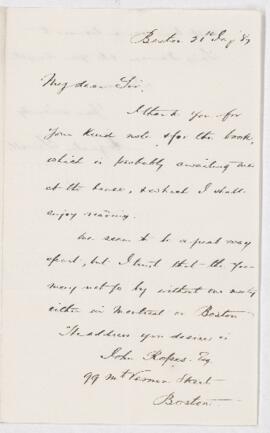 Boston 21st Jany 87
My dear Sir,
I thank you for
your kind note, & for the book,
which is probably awaiting me
at the house, & which I shall
enjoy reading.
We seem to be a great way
apart, but I trust that the year
may not go by without our meeting
either in Montreal or Boston
The address you desire is
John Ropes. Esq
99 Mt Vernon Street
Boston.